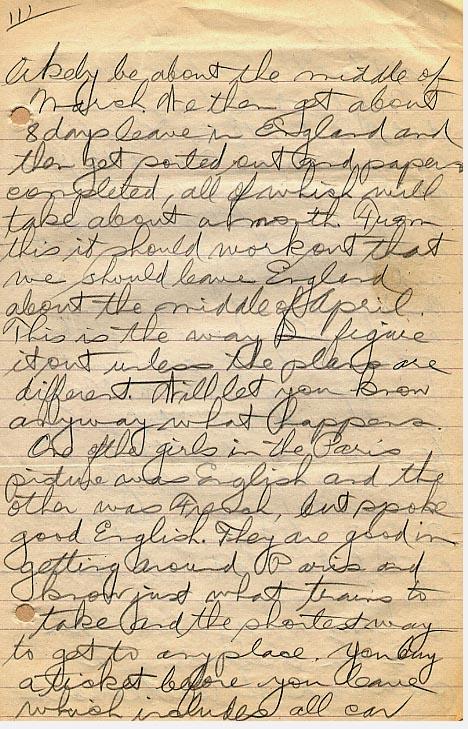 111)
likely be about the middle of
March. We then get about
8 days leave in England and
then get sorted out and papers
completed, all of which will
take about a month. From
this it should work out that
we should leave England
about the middle of April.
This is the way I figure
it out unless the plans are
different. Will let you know
anyway what happens.
One of the girls in the Paris
picture was English and the
other was French, but spoke
good English. They are good in
getting around Paris and
know just what trains to
take and the shortest way
to get to any place. You buy
a ticket before you leave
which includes all car